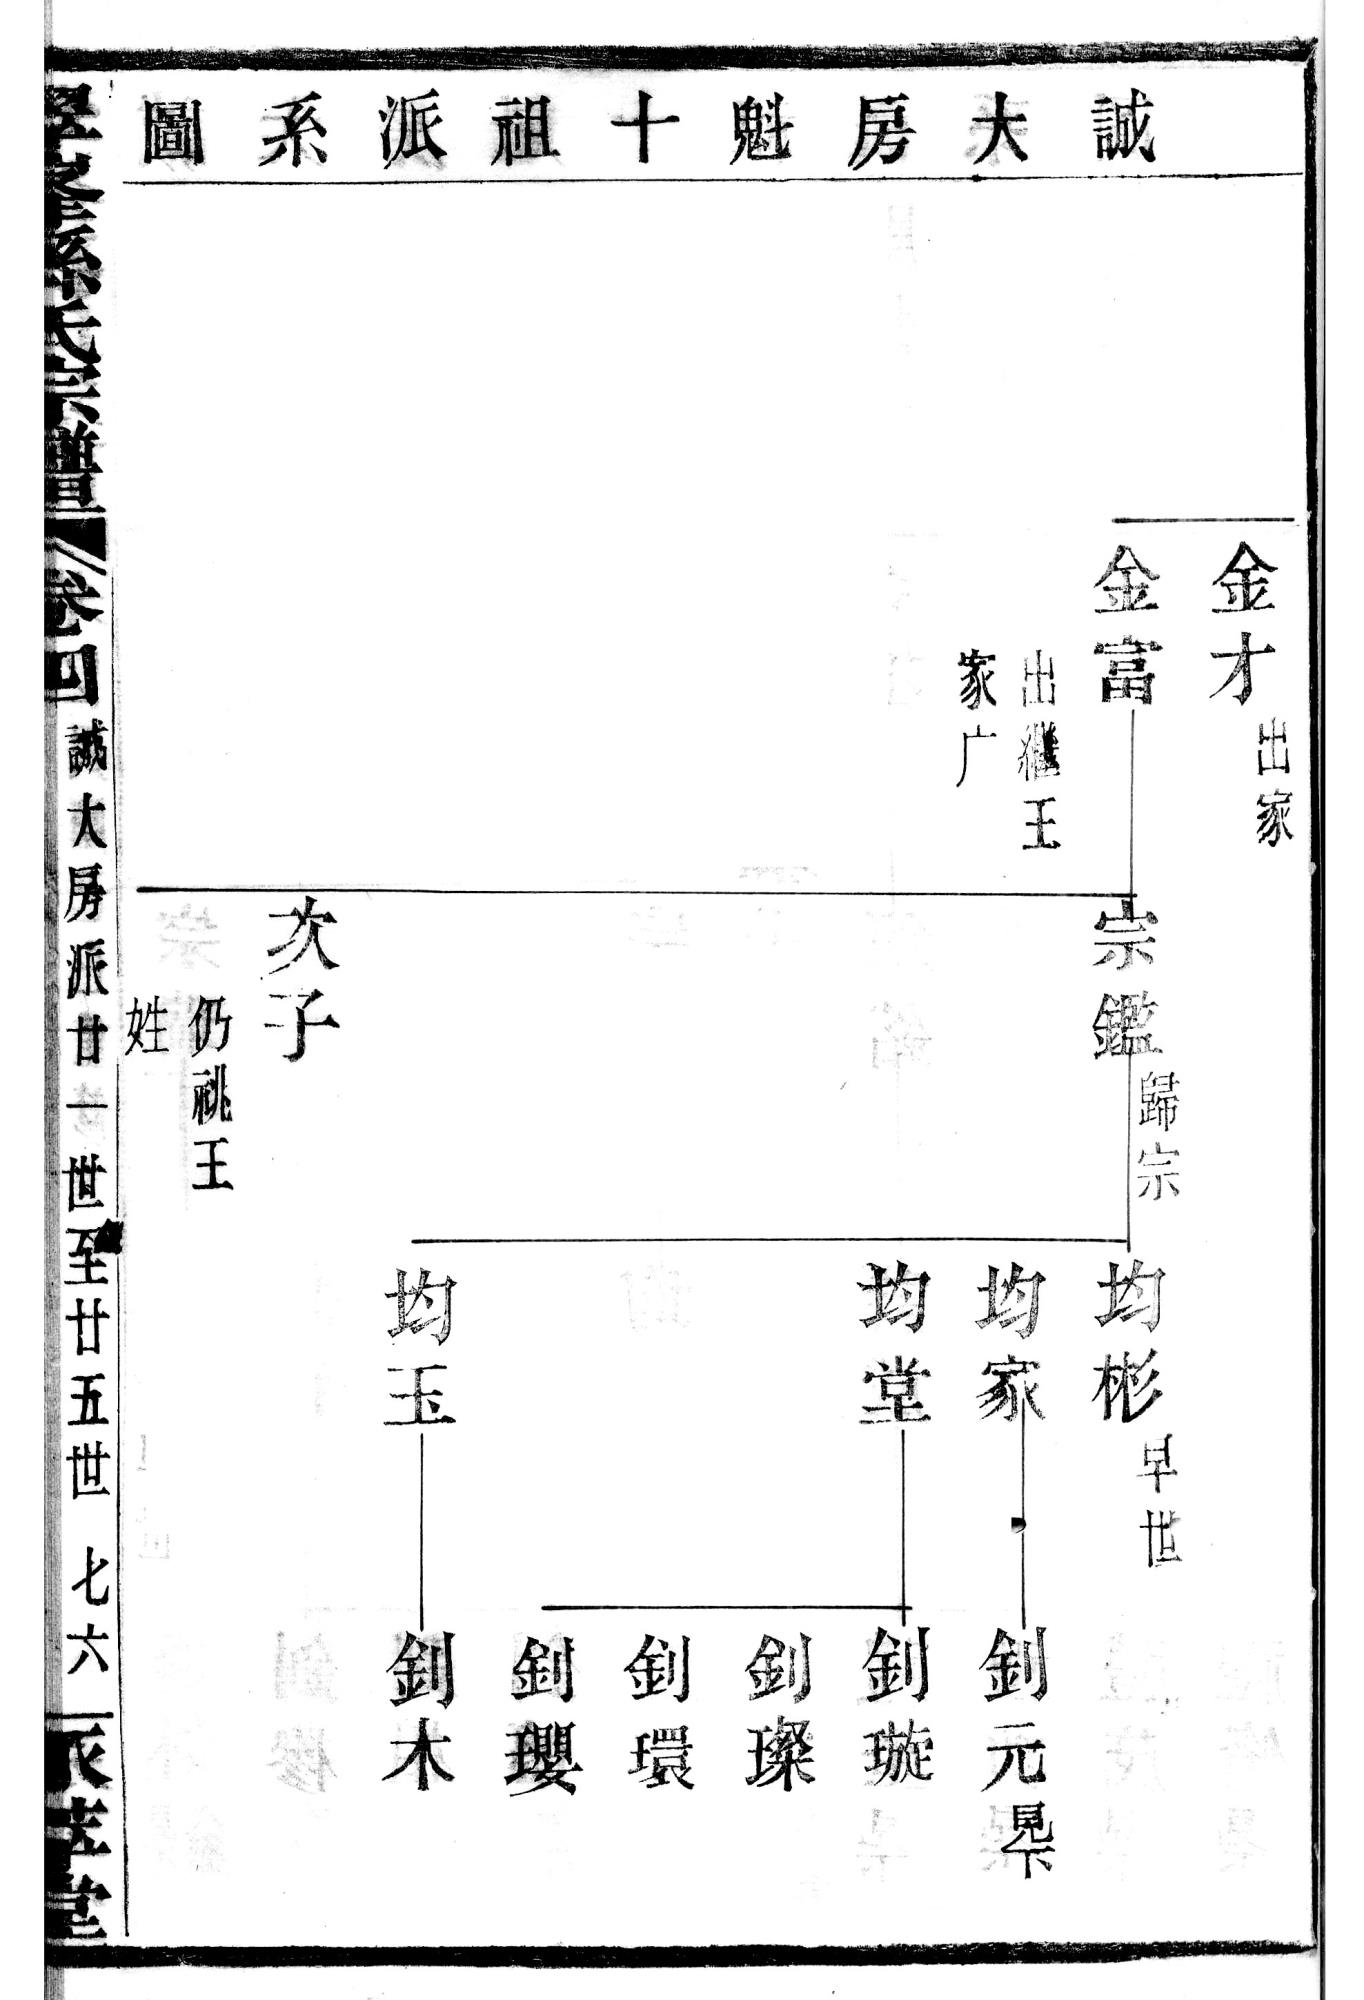 誠大房魁十祖派系圖
金才
出家
金富
出繼王
家广
宗鑑
歸宗
次子
仍祧王
姓
均彬
早世
均家
均堂
均玉
釗元
見下
釗璇
釗璨
釗環
釗瓔
釗木
孫氏宗譜
卷四
誠大房派廿一世至廿五世
七六
堂